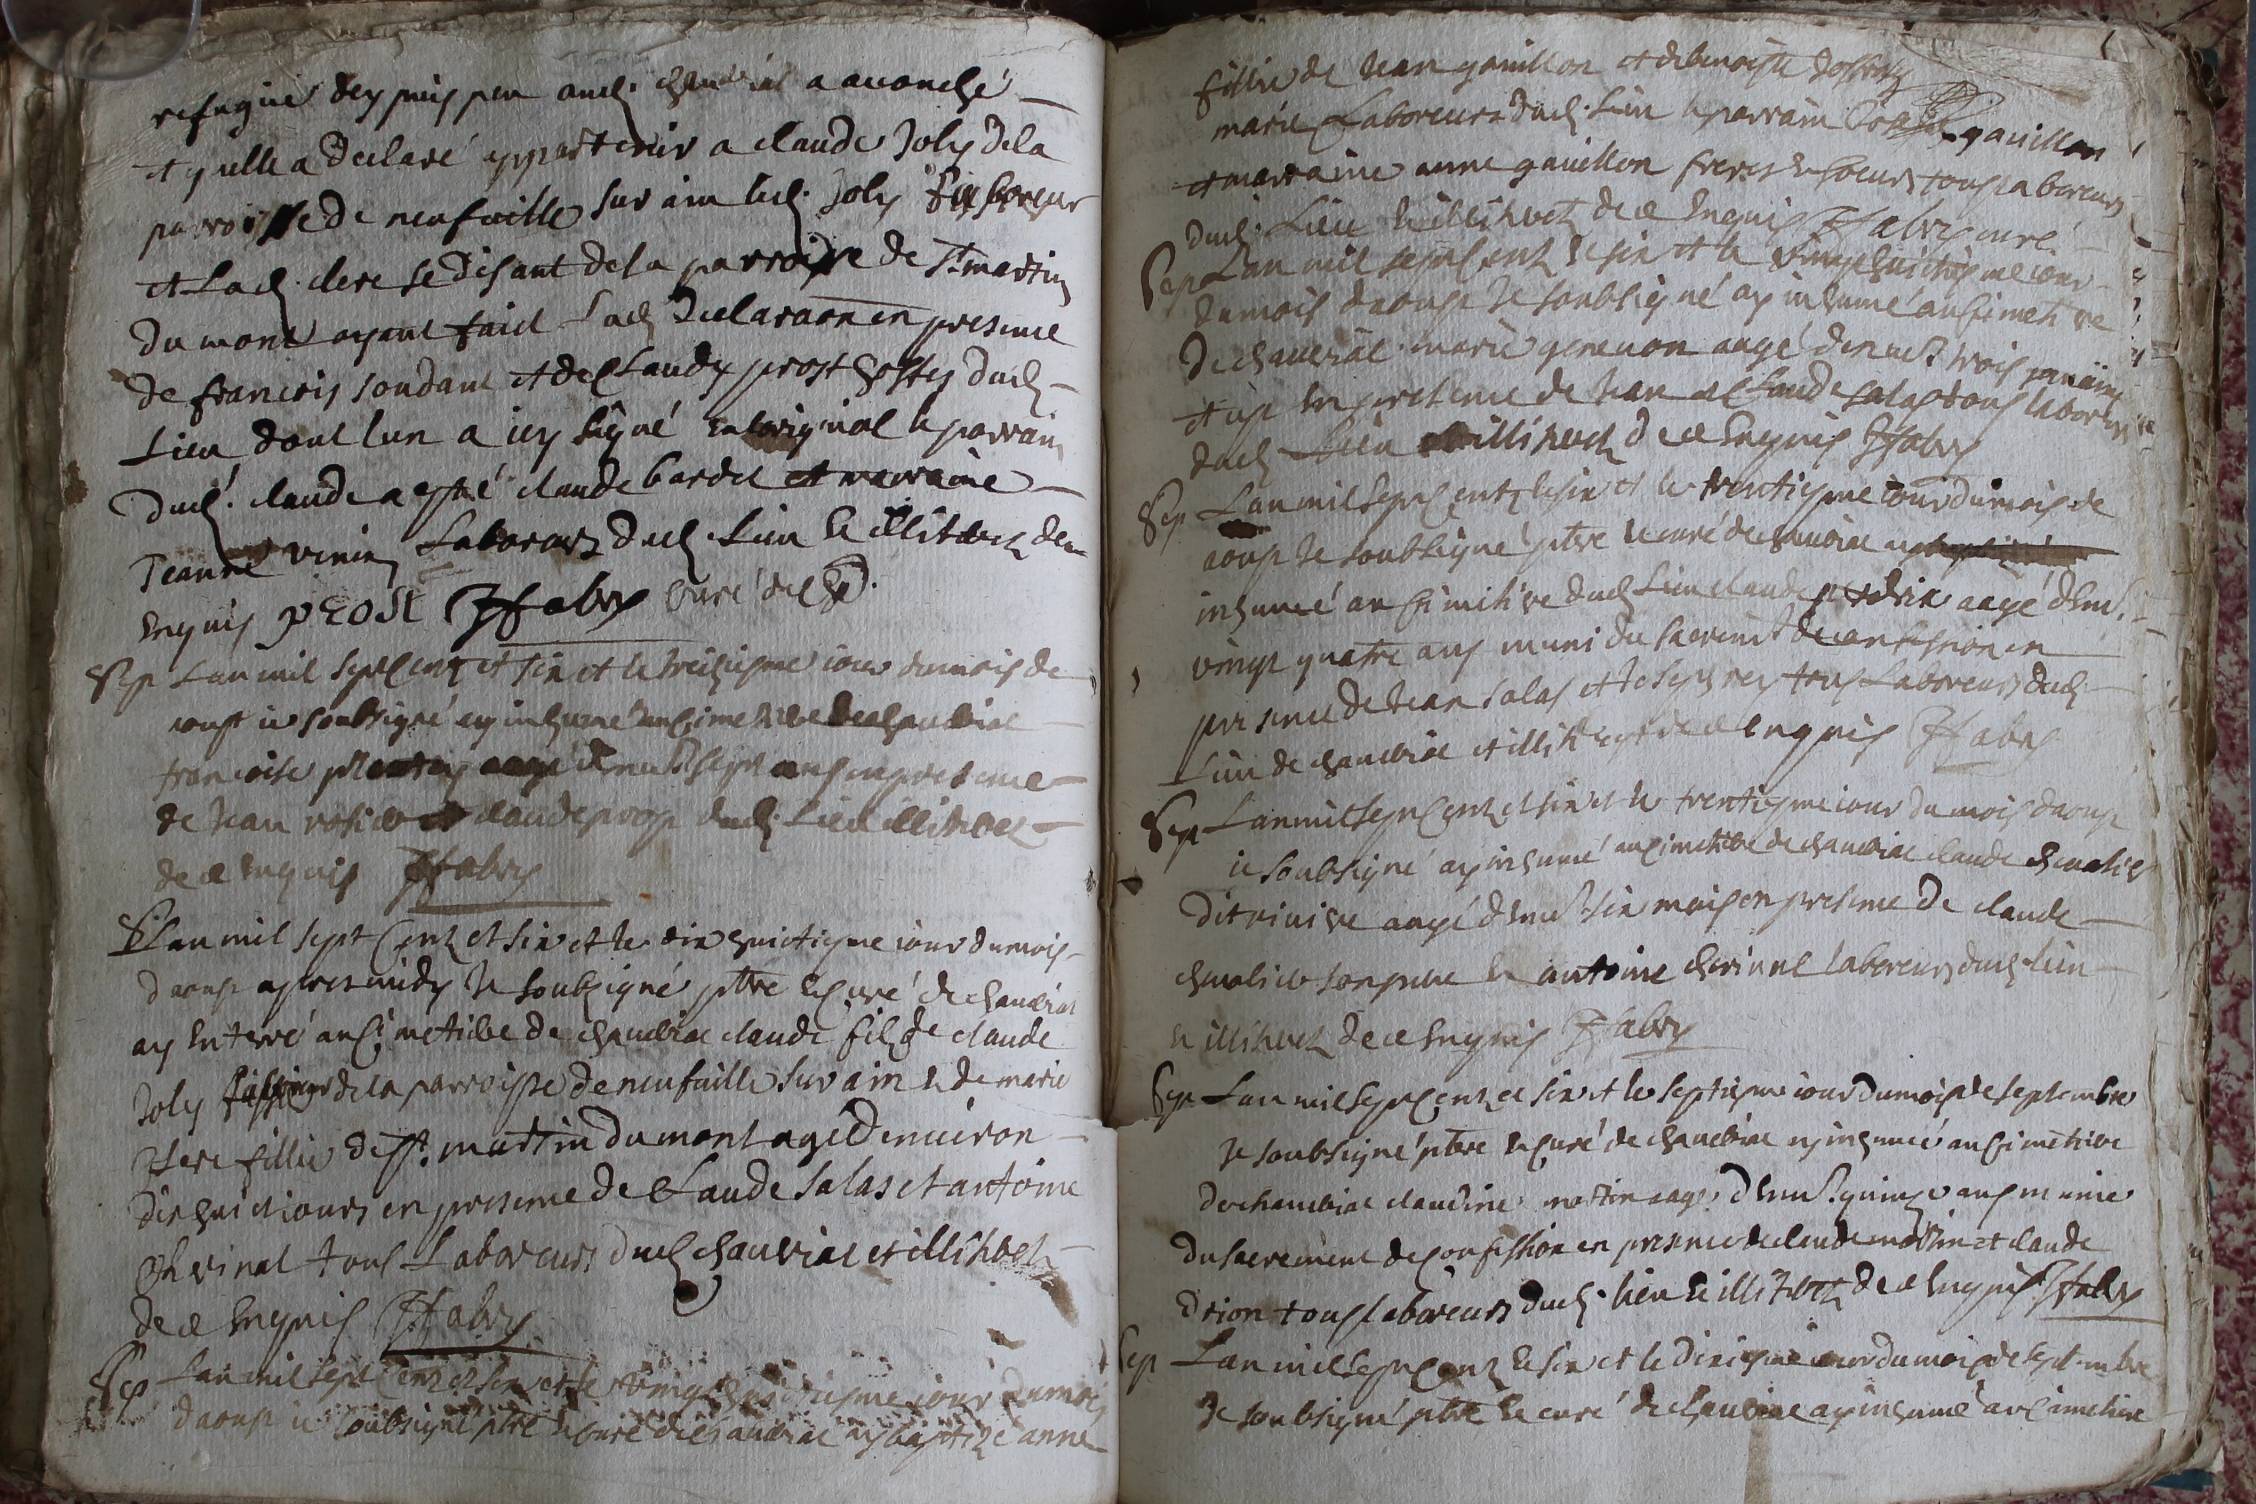 refugiée depuis peu aud. chauviat a accouché
et qu'elle a declaré appartenir a claude Joly de la
parroisse de neufuille sur ain led. Joly
et Lad. clere se disant de la parroisse de St martin
du mont ayant faict Lad. declaraon en presence
de francois soudant et de Claude prost hostes dud.
Lieu dont lun a icy signé en loriginal le parrain
dud. claude a esté claude bardet et marraine
Jeanne Laboreurs dud. Lieu et illiterés de ce
enquis PROST Ffabry Curé
Sep Lan mil sept Centz et six et le treiziesme iour du mois de
aoust ie soubsigné ay inhumé au Cimetiere de chauviat
francoise aagé denuiron sept ans en presence
de Jean et claude prost dud. Lieu illiterés
de ce enquis Ffabry
S. Lan mil sept Centz et six et le dix huictiesme iour du mois
daoust apres midy Ie soubsigné ptre et Curé de chauviat
ay enterré au Cimetiere de chauviat claude filz de claude
Joly de la parroisse de neufuille sur ain et de marie
clere fillie de St. martin du mont agé denuiron
dix huict iours en presence de Claude Salas et antoine
Chrinal tous Laboreurs dud. chauviat et illiterés
de ce enquis Ffabry
Sep Lan mil sept Centz et six et le vingt huictiesme iour du mois
daoust ie soubsigné ptre et curé de chauviat ay baptizé anne
fillie de Jean gauillon et de benoiste
mariés Laboreurs dud. Lieu le parrain gauillon
et marraine anne gauillon freres et soeurs tous laboreurs
dud. Lieu et illiterés de ce enquis Ffabry curé
Sep Lan mil sept Centz et six et le vingt huictiesme iour
du mois daoust Ie soubsigné ay inhumé au Cimetiere
de chauviat marie geneuon aagé denuiron trois
et ce en presence de Jean et Claude Salas tous laboreurs
dud. Lieu et illiterés de ce enquis Ffabry
Sep Lan mil sept Centz et six et le trentiesme iour du mois de
aoust Ie soubsigné ptre et curé de chauviat ay
inhumé au Cimetiere dud. Lieu claude aagé denu.
vingt quatre ans muni du sacremt de confession en
presence de Jean Salas et tous Laboreurs dud.
Lieu de chauviat et illiterés de ce enquis Ffabry
Sep Lan mil sept Centz et six et le trentiesme iour du mois daoust
ie soubsigné ay inhumé au Cimetiere de chauviat claude cheualier
dit riuiere aagé denu. six mois en presence de claude
cheualier son pere et antoine chrinal laboreurs dud. lieu
et illiterés de ce enquis Ffabry
Sep Lan mil sept Centz et six et le septiesme iour du mois de septembre
Ie soubsigné ptre et Curé de chauviat ay inhumé au Cimetiere
de chauviat claudine martin aagé denu. quinze ans munie
du sacrement de Confession en presence de claude martin et claude
drion tous laboreurs dud. lieu et illiterés de ce enquis Ffabry
Sep Lan mil sept Centz et six et le dixiesme iour du mois de septembre
Ie soubsigné ptre et curé de chauviat ay inhumé au Cimetiere